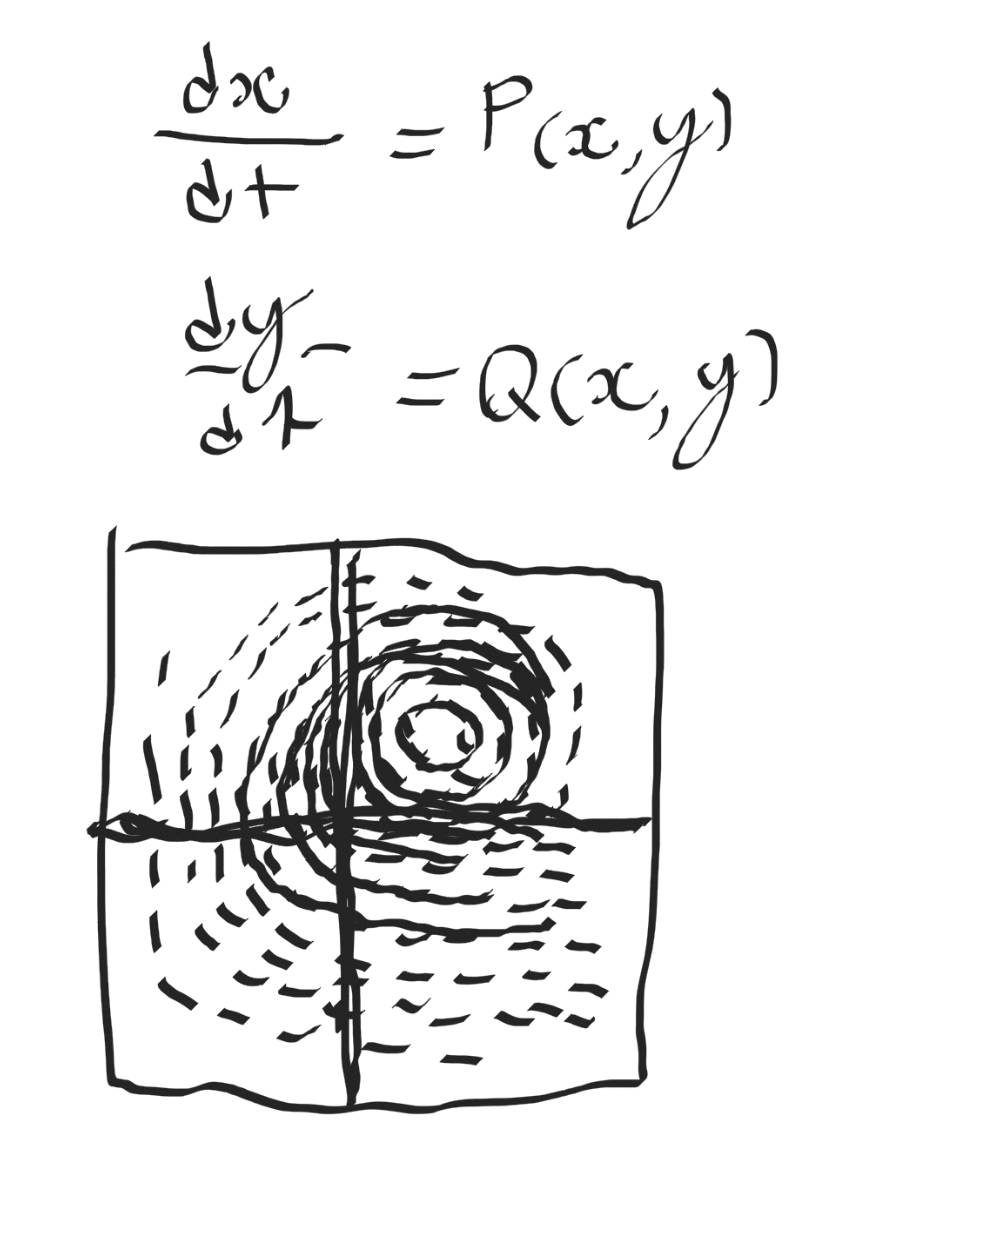 dx/dt = P(x,y)
dy/dt = Q(x,y)